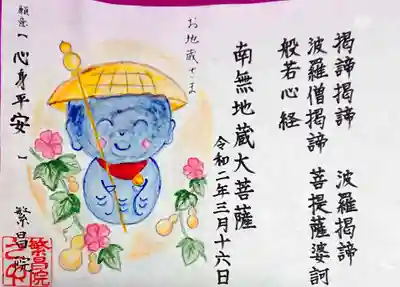 揭諦揭諦　波羅揭諦
波羅僧揭諦　菩提薩婆訶
般若心経
南無地蔵大菩薩
令和二年三月十六日
お地蔵さま
願意【心身平安】
繁昌院
繁昌院